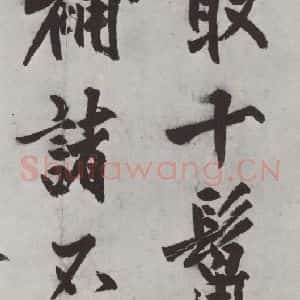 十
補諸不
Shufawang.CN